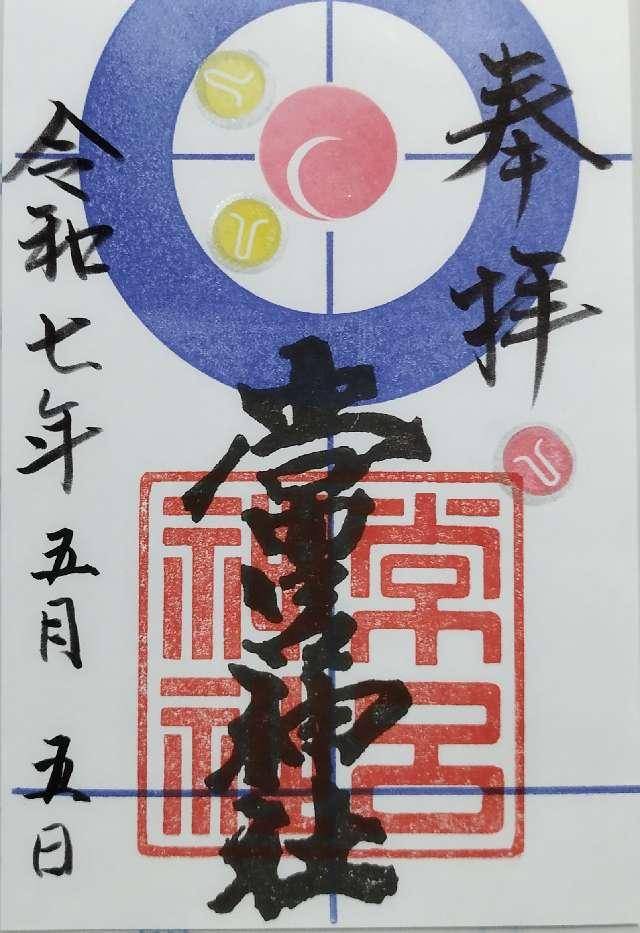 奉拝
常呂神社
常呂
神社
令和七年五月五日